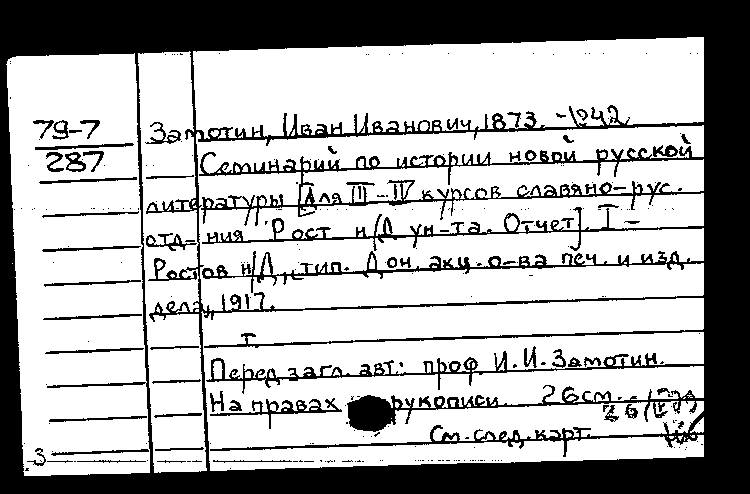 79-7 Замотин, Иван Иванович, 1873. -1942
287 Семинарий по истории новой русской
литературы [Для III-IV курсов славяно-рус.
отд-ния Рост н/Д ун-та. Отчет]. I -
Ростов н/Д, тип. Дон. акц. о-ва печ. и изд.
дела, 1917.
т.
Перед загл. авт.: проф. И.И. Замотин.
На правах рукописи. 26см.
См. след. карт.
3